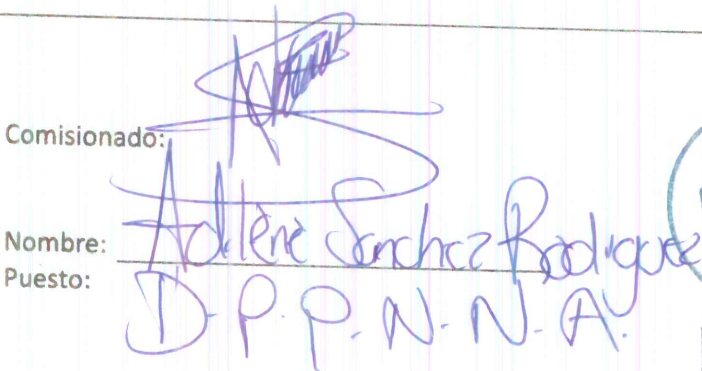 Comisionado:
Nombre: Adilene Sanchez Rodriguez
Puesto: D.P.P.N.N.A.